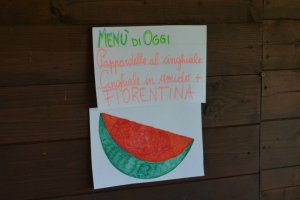 MENÙ DI OGGI
Pappardelle al cinghiale
Cinghiale in umido +
FIORENTINA